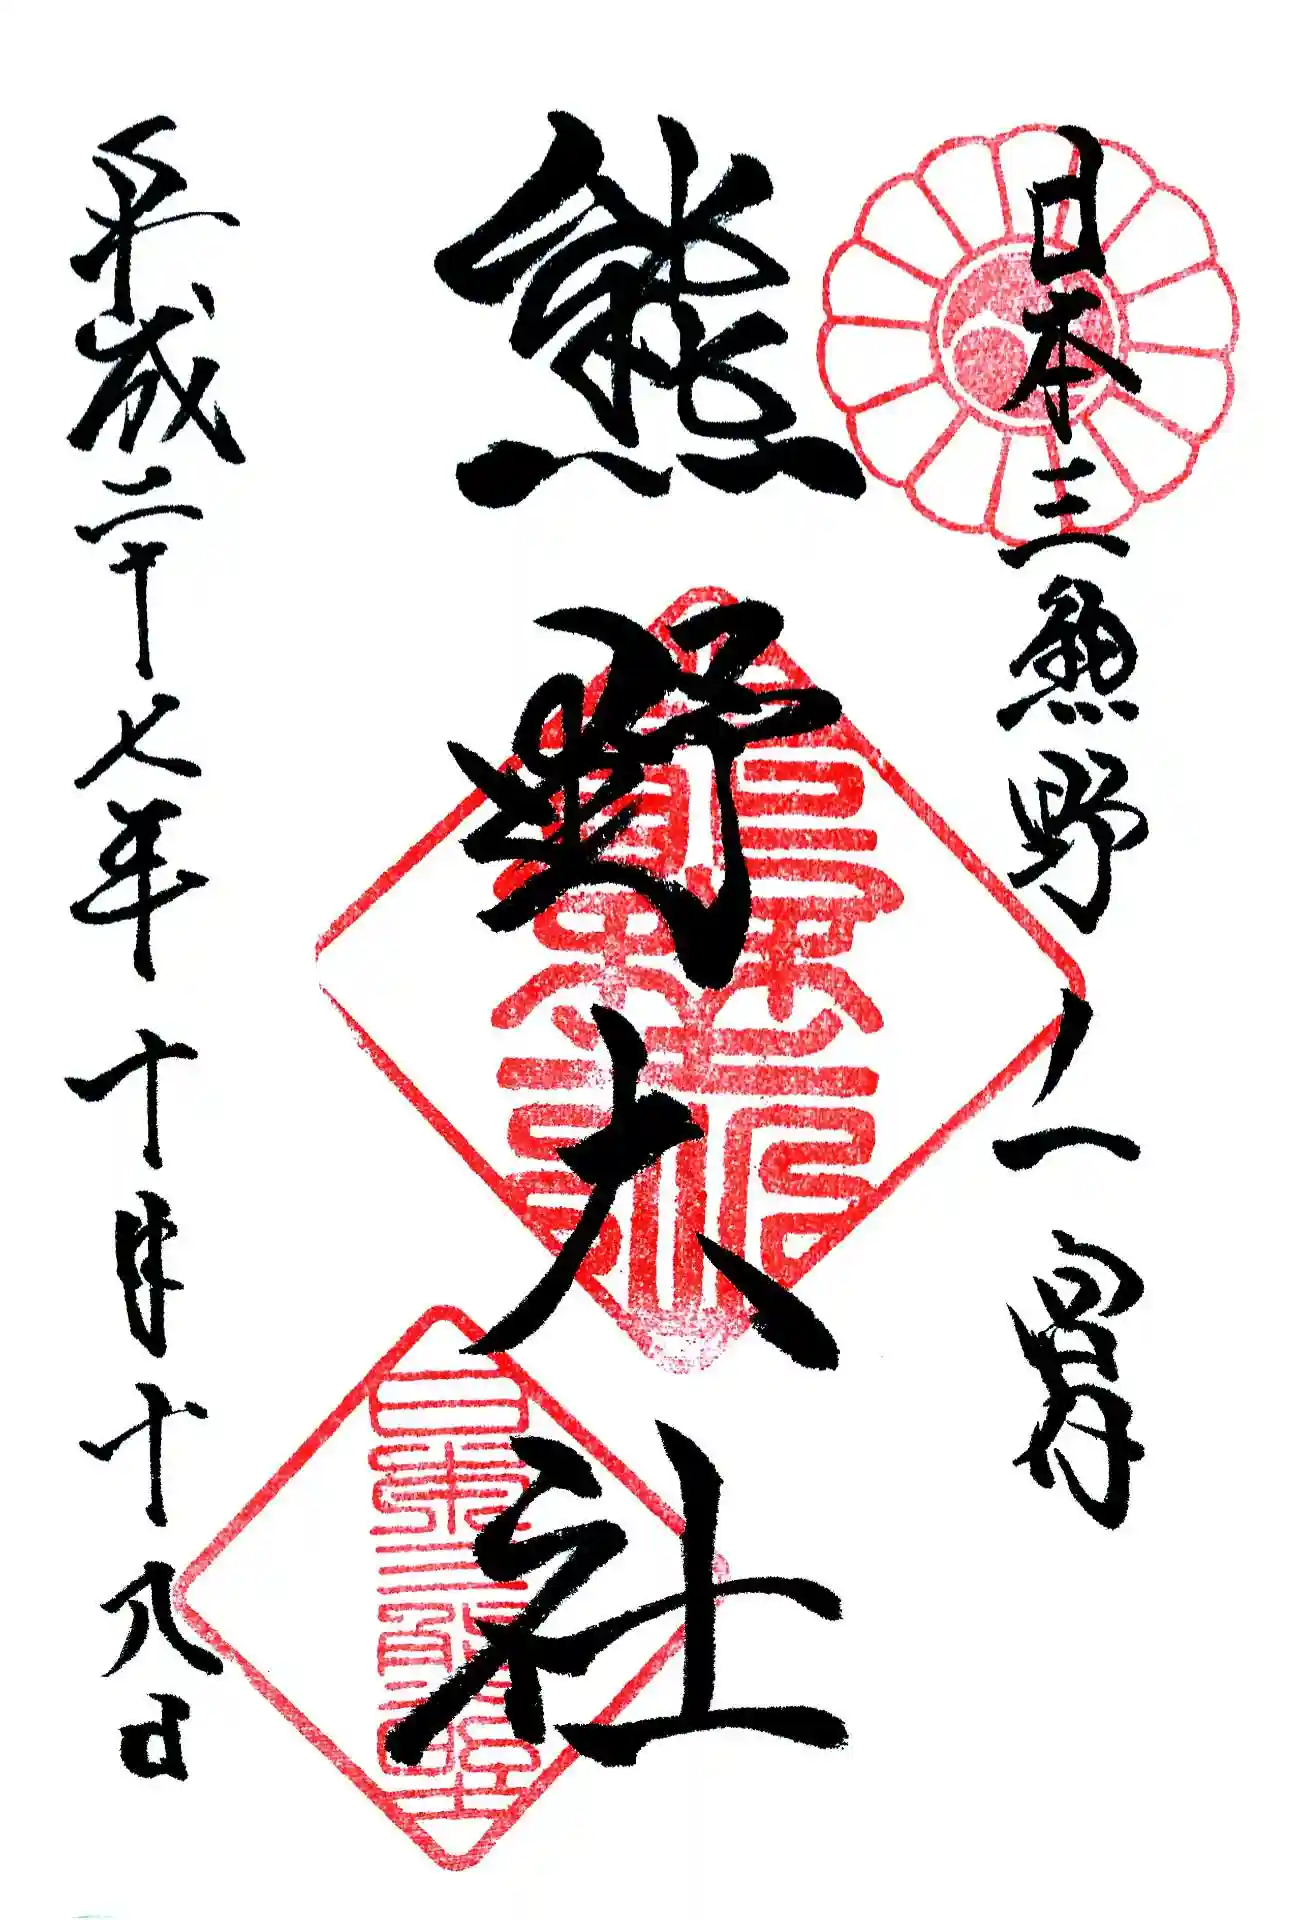 日本三熊野ノ一宮
熊野大社
平成二十七年十月十八日